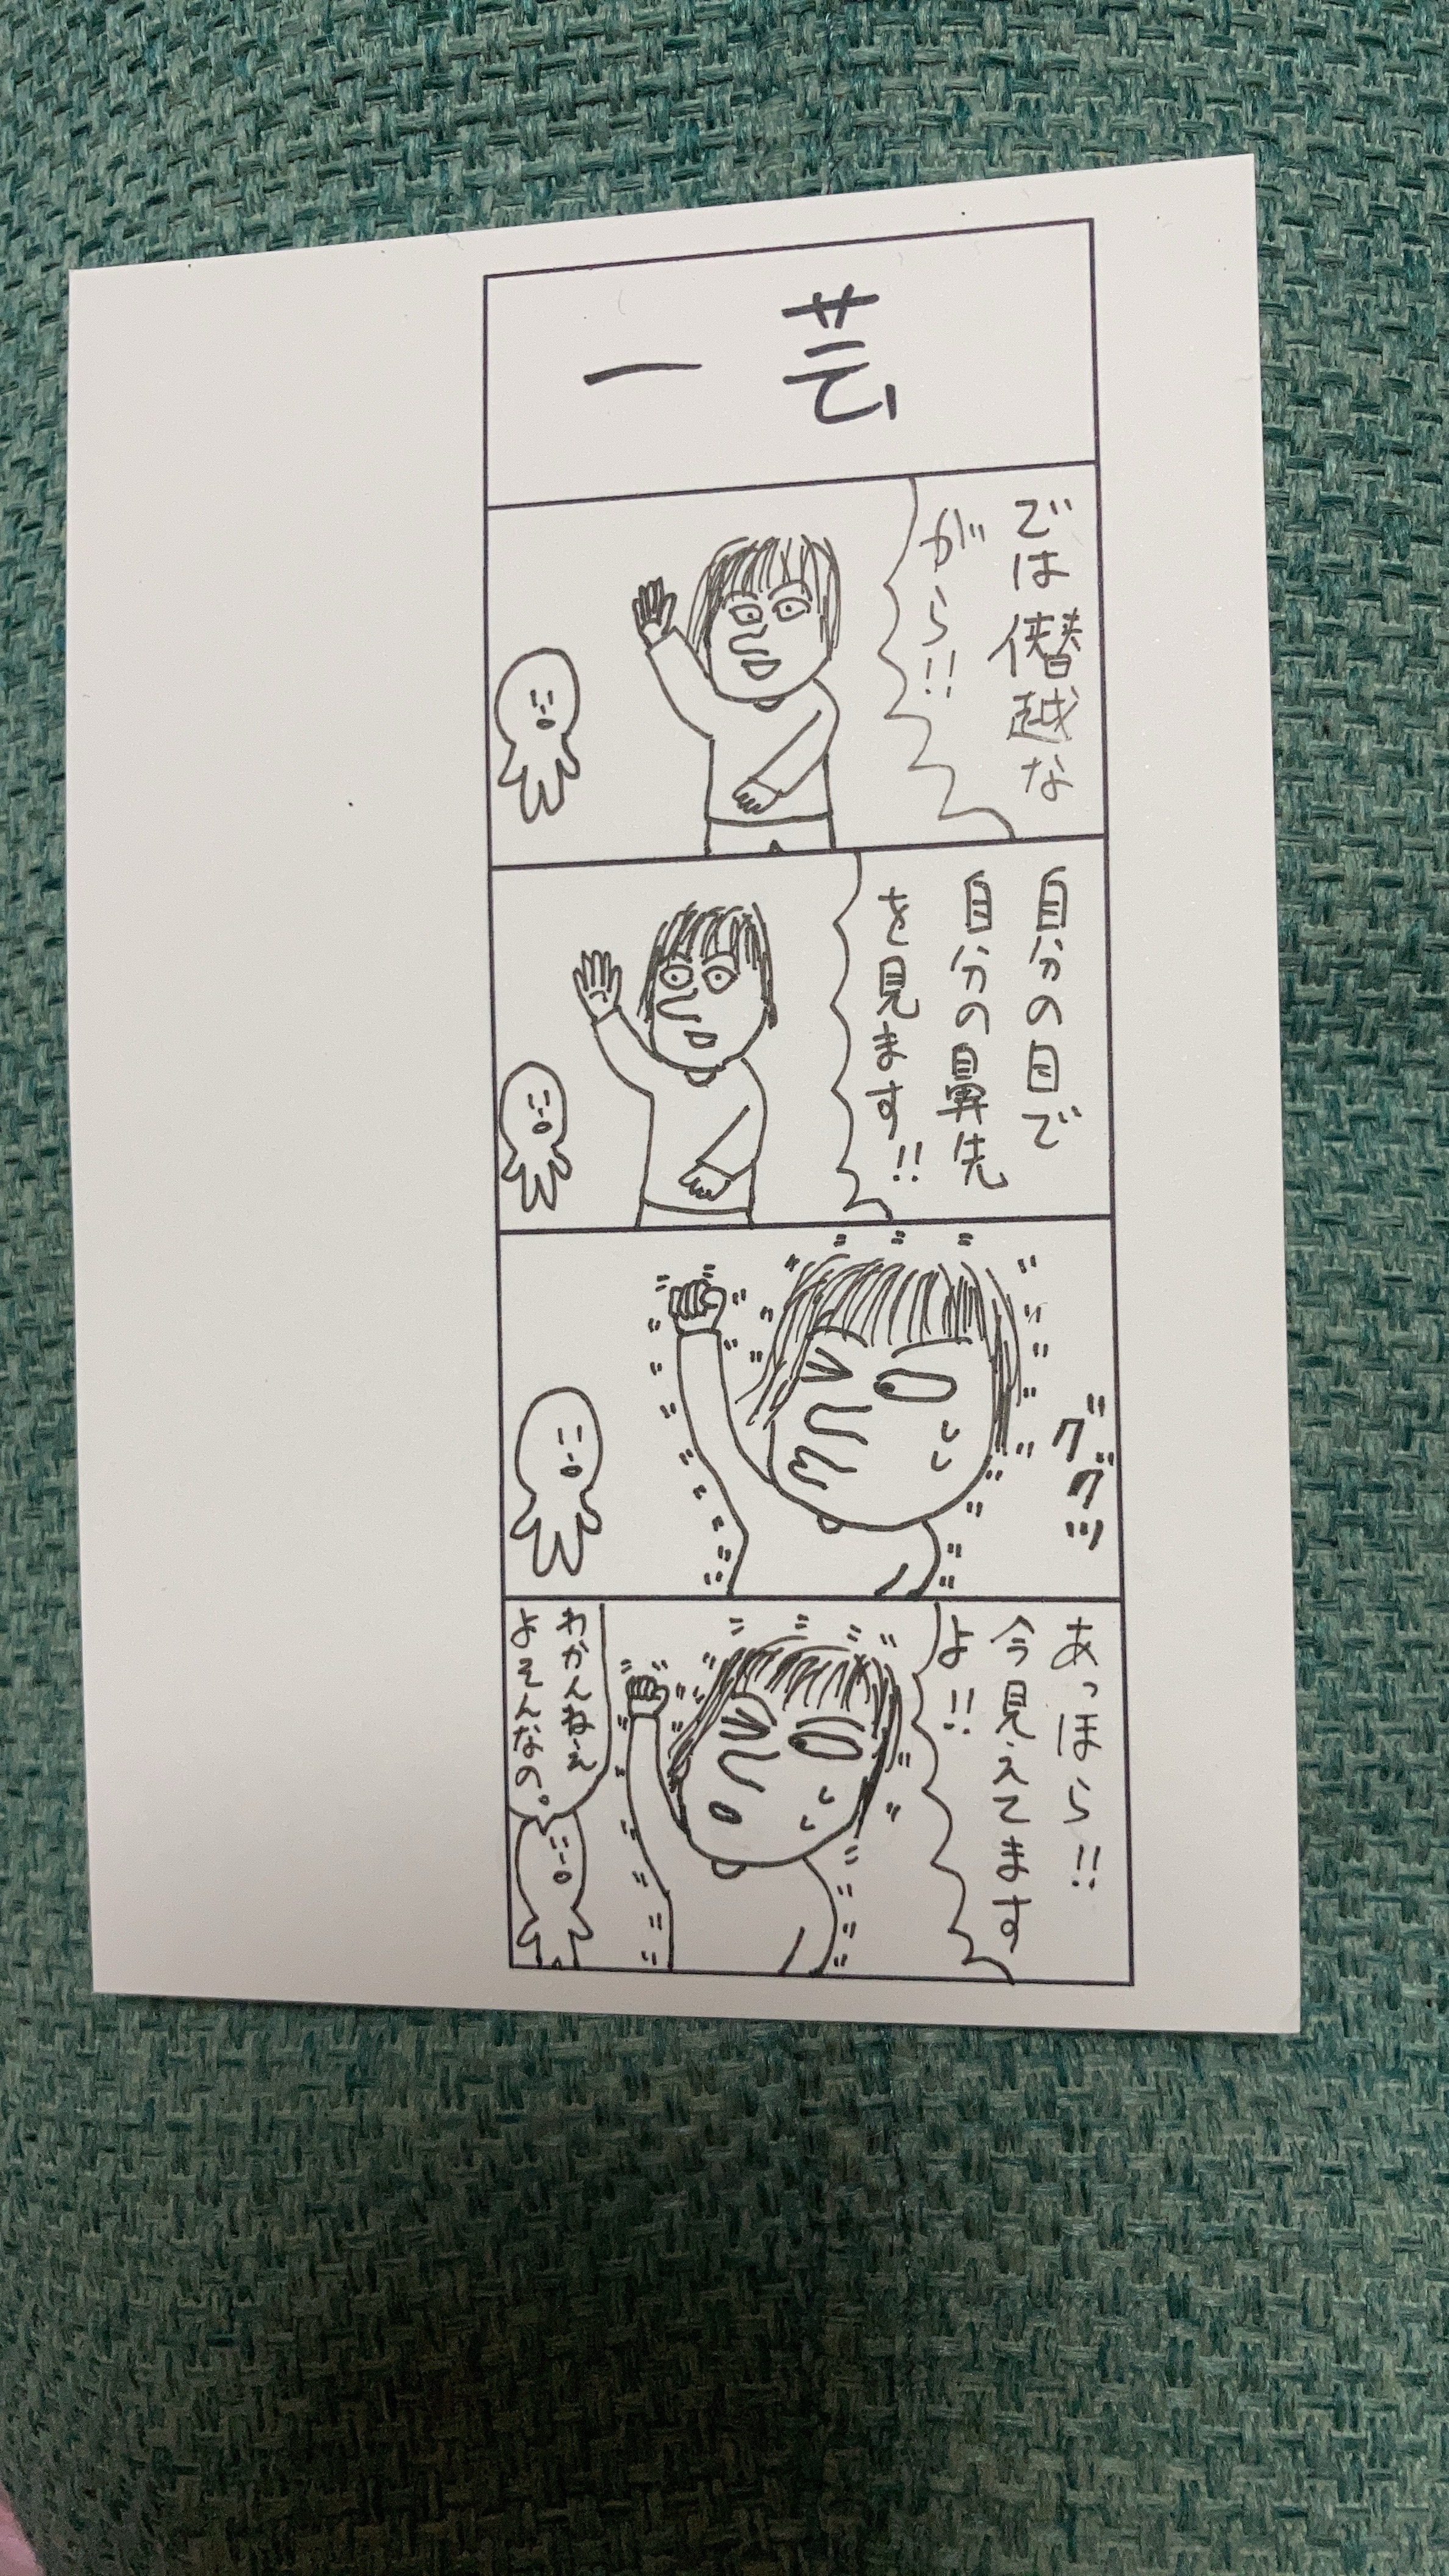 一芸
では僭越な
がら!!
自分の目で
自分の鼻先
を見ます!!
ググッ
あっほら!!
今見えてます
よ!!
わかんねぇ
よそんなの。